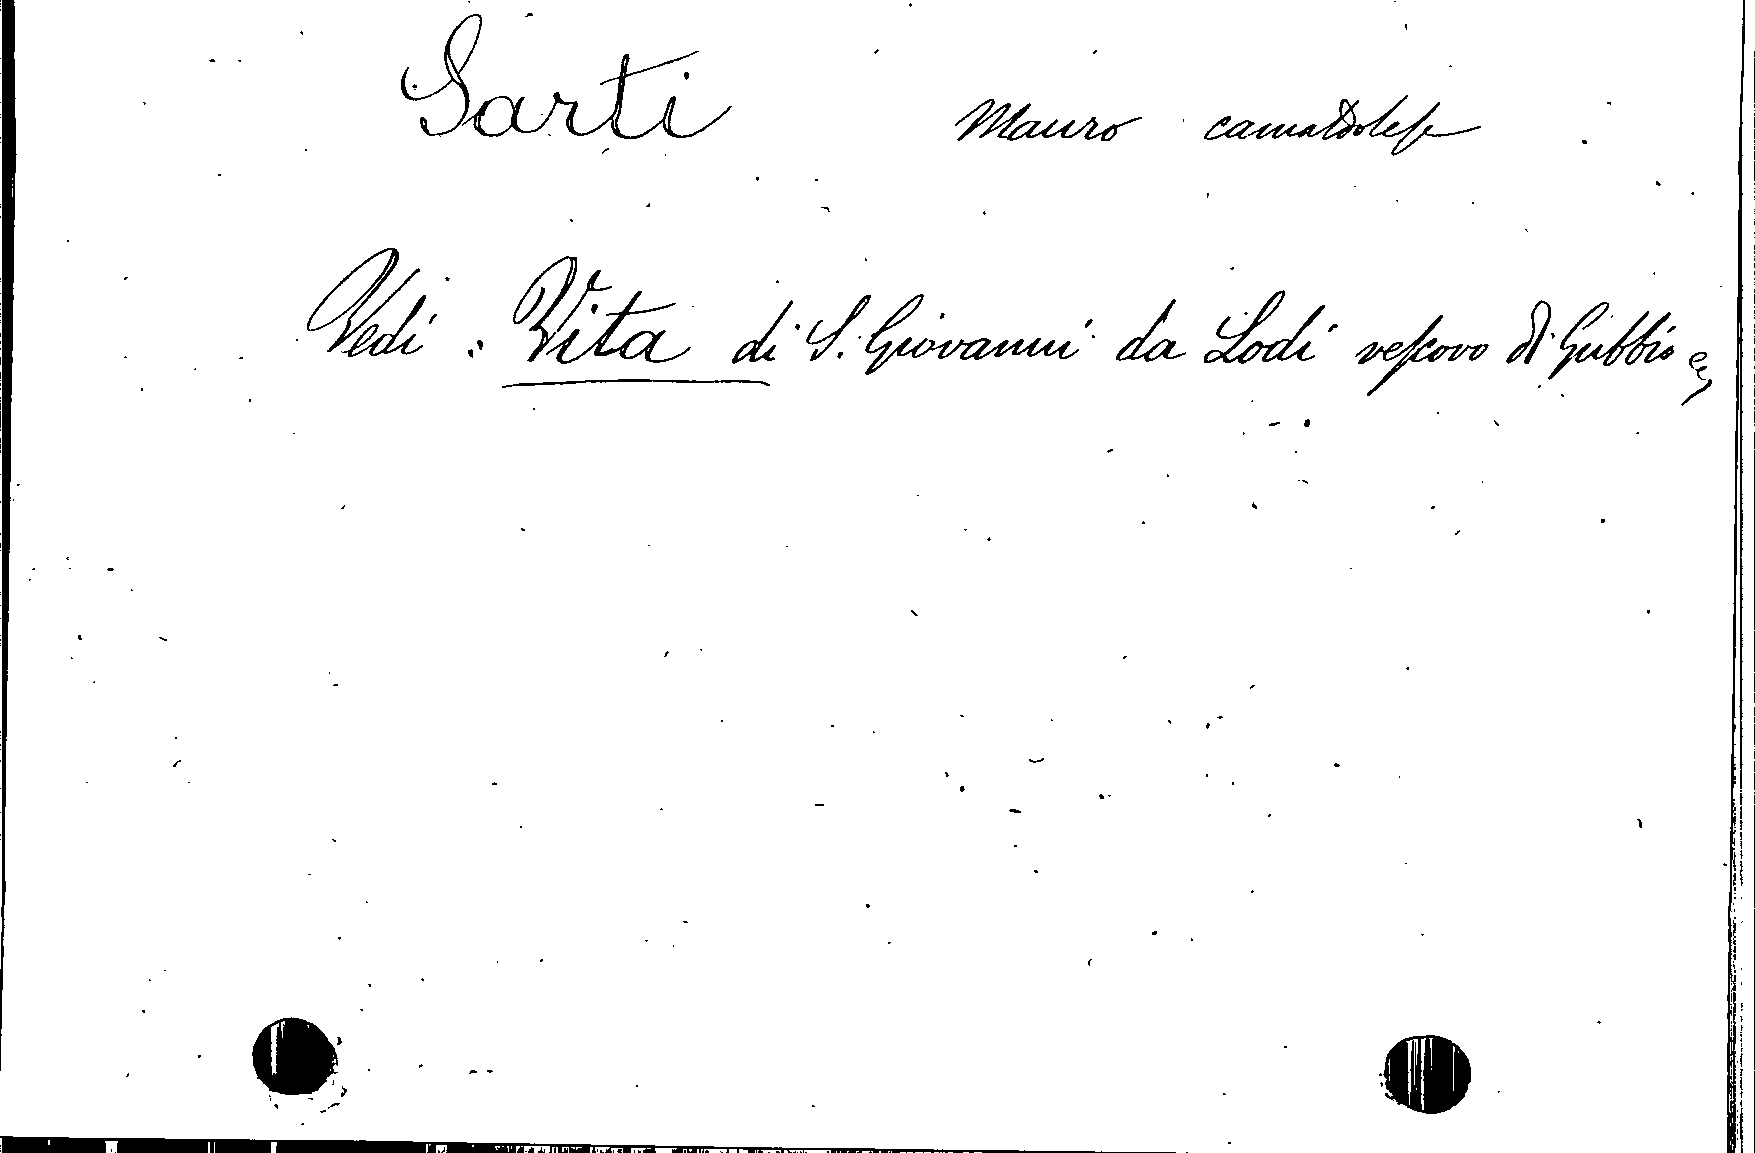 Sarti Mauro camaldolese
Vedi: Vita di S. Giovanni da Lodi vescovo di Gubbio